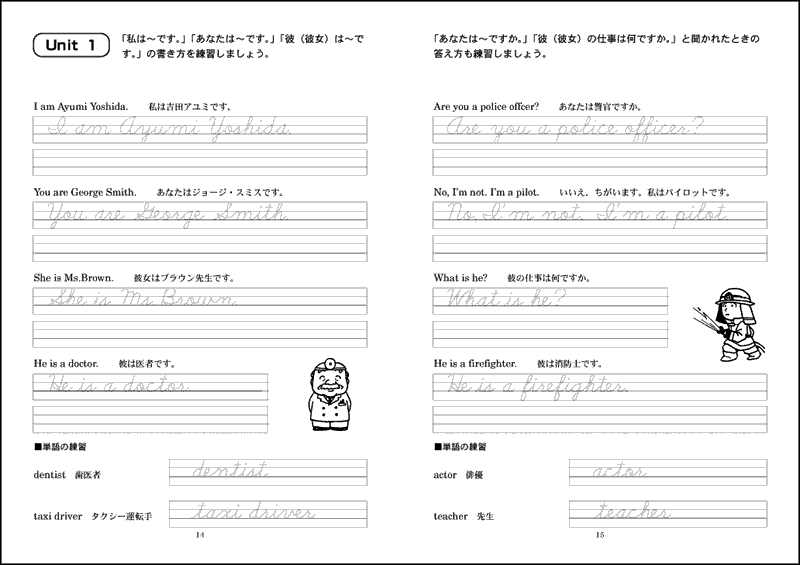 Unit 1
「私は～です。」「あなたは～です。」「彼（彼女）は～で
す。」の書き方を練習しましょう。
I am Ayumi Yoshida. 私は吉田アユミです。
I am Ayumi Yoshida.
You are George Smith. あなたはジョージ・スミスです。
You are George Smith.
She is Ms.Brown. 彼女はブラウン先生です。
She is Ms Brown.
He is a doctor. 彼は医者です。
He is a doctor.
■単語の練習
dentist 歯医者
dentist
taxi driver タクシー運転手
taxi driver
14
「あなたは～ですか。」「彼（彼女）の仕事は何ですか。」と聞かれたときの
答え方も練習しましょう。
Are you a police offcer? あなたは警官ですか。
Are you a police officer?
No, I'm not. I'm a pilot. いいえ、ちがいます。私はパイロットです。
No, I'm not. I'm a pilot.
What is he? 彼の仕事は何ですか。
What is he?
He is a firefighter. 彼は消防士です。
He is a firefighter.
■単語の練習
actor 俳優
actor
teacher 先生
teacher
15